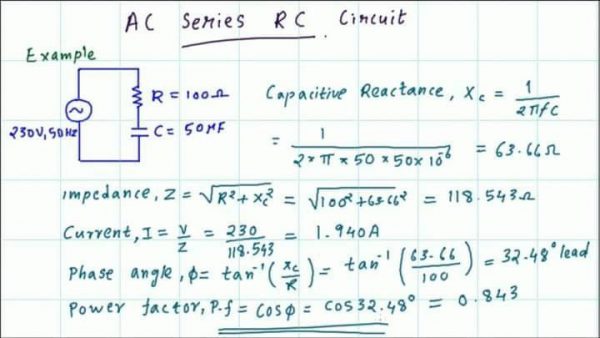 AC Series RC Circuit
Example
R = 100Ω
C = 50μF
230V, 50Hz
Capacitive Reactance, Xc = 1 / 2πfC
= 1 / 2*π*50*50*10⁻⁶ = 63.66Ω
Impedance, Z = √R²+Xc² = √100²+63.66² = 118.543Ω
Current, I = V/Z = 230/118.543 = 1.940A
Phase angle, φ = tan⁻¹(Xc/R) = tan⁻¹(63.66/100) = 32.48° lead
Power factor, P.f = cosφ = cos32.48° = 0.843